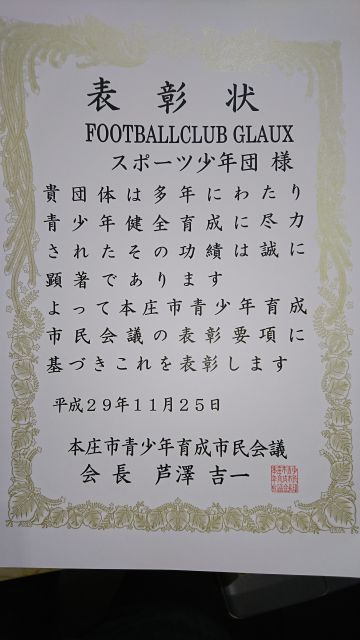 表彰状
FOOTBALLCLUB GLAUX
スポーツ少年団 様
貴団体は多年にわたり
青少年健全育成に尽力
されたその功績は誠に
顕著であります
よって本庄市青少年育成
市民会議の表彰要項に
基づきこれを表彰します
平成29年11月25日
本庄市青少年育成市民会議
会長 芦澤 吉一